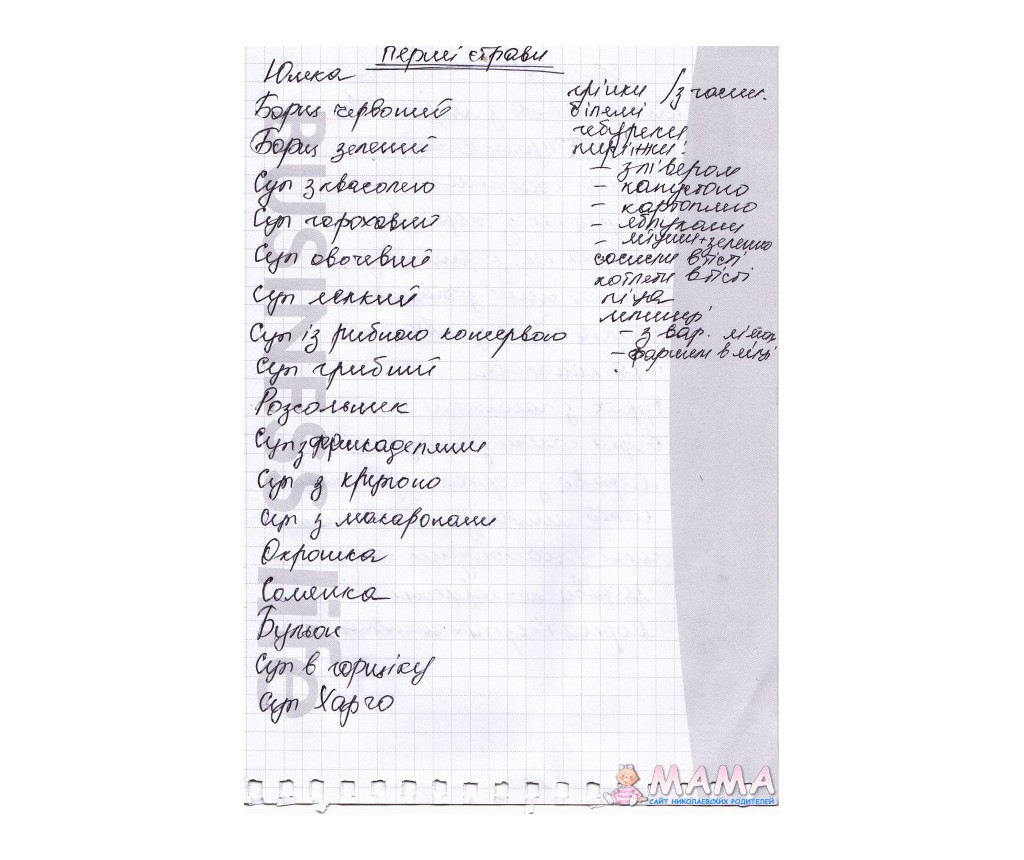 Перші страви
Юшка
Борщ червоний
Борщ зелений
Суп з квасолею
Суп гороховий
Суп овочевий
Суп легкий
Суп із рибного консервого
Суп грибний
Розсольник
Суп з фрикадельками
Суп з крупою
Суп з макаронами
Окрошка
Солянка
Бульон
Суп в горщіку
Суп Харчо
грінки /з часн.
біляші
чебуреки
піріжки:
– з лівером
– капустою
– картоплею
– яблуками
– яйцями+зеленню
сосиски в тісті
котлети в тісті
піца
млинці
– з вар. м'ясом
– фаршем в яйці
BUSINESS life
МАМА
САЙТ НИКОЛАЕВСКИХ РОДИТЕЛЕЙ